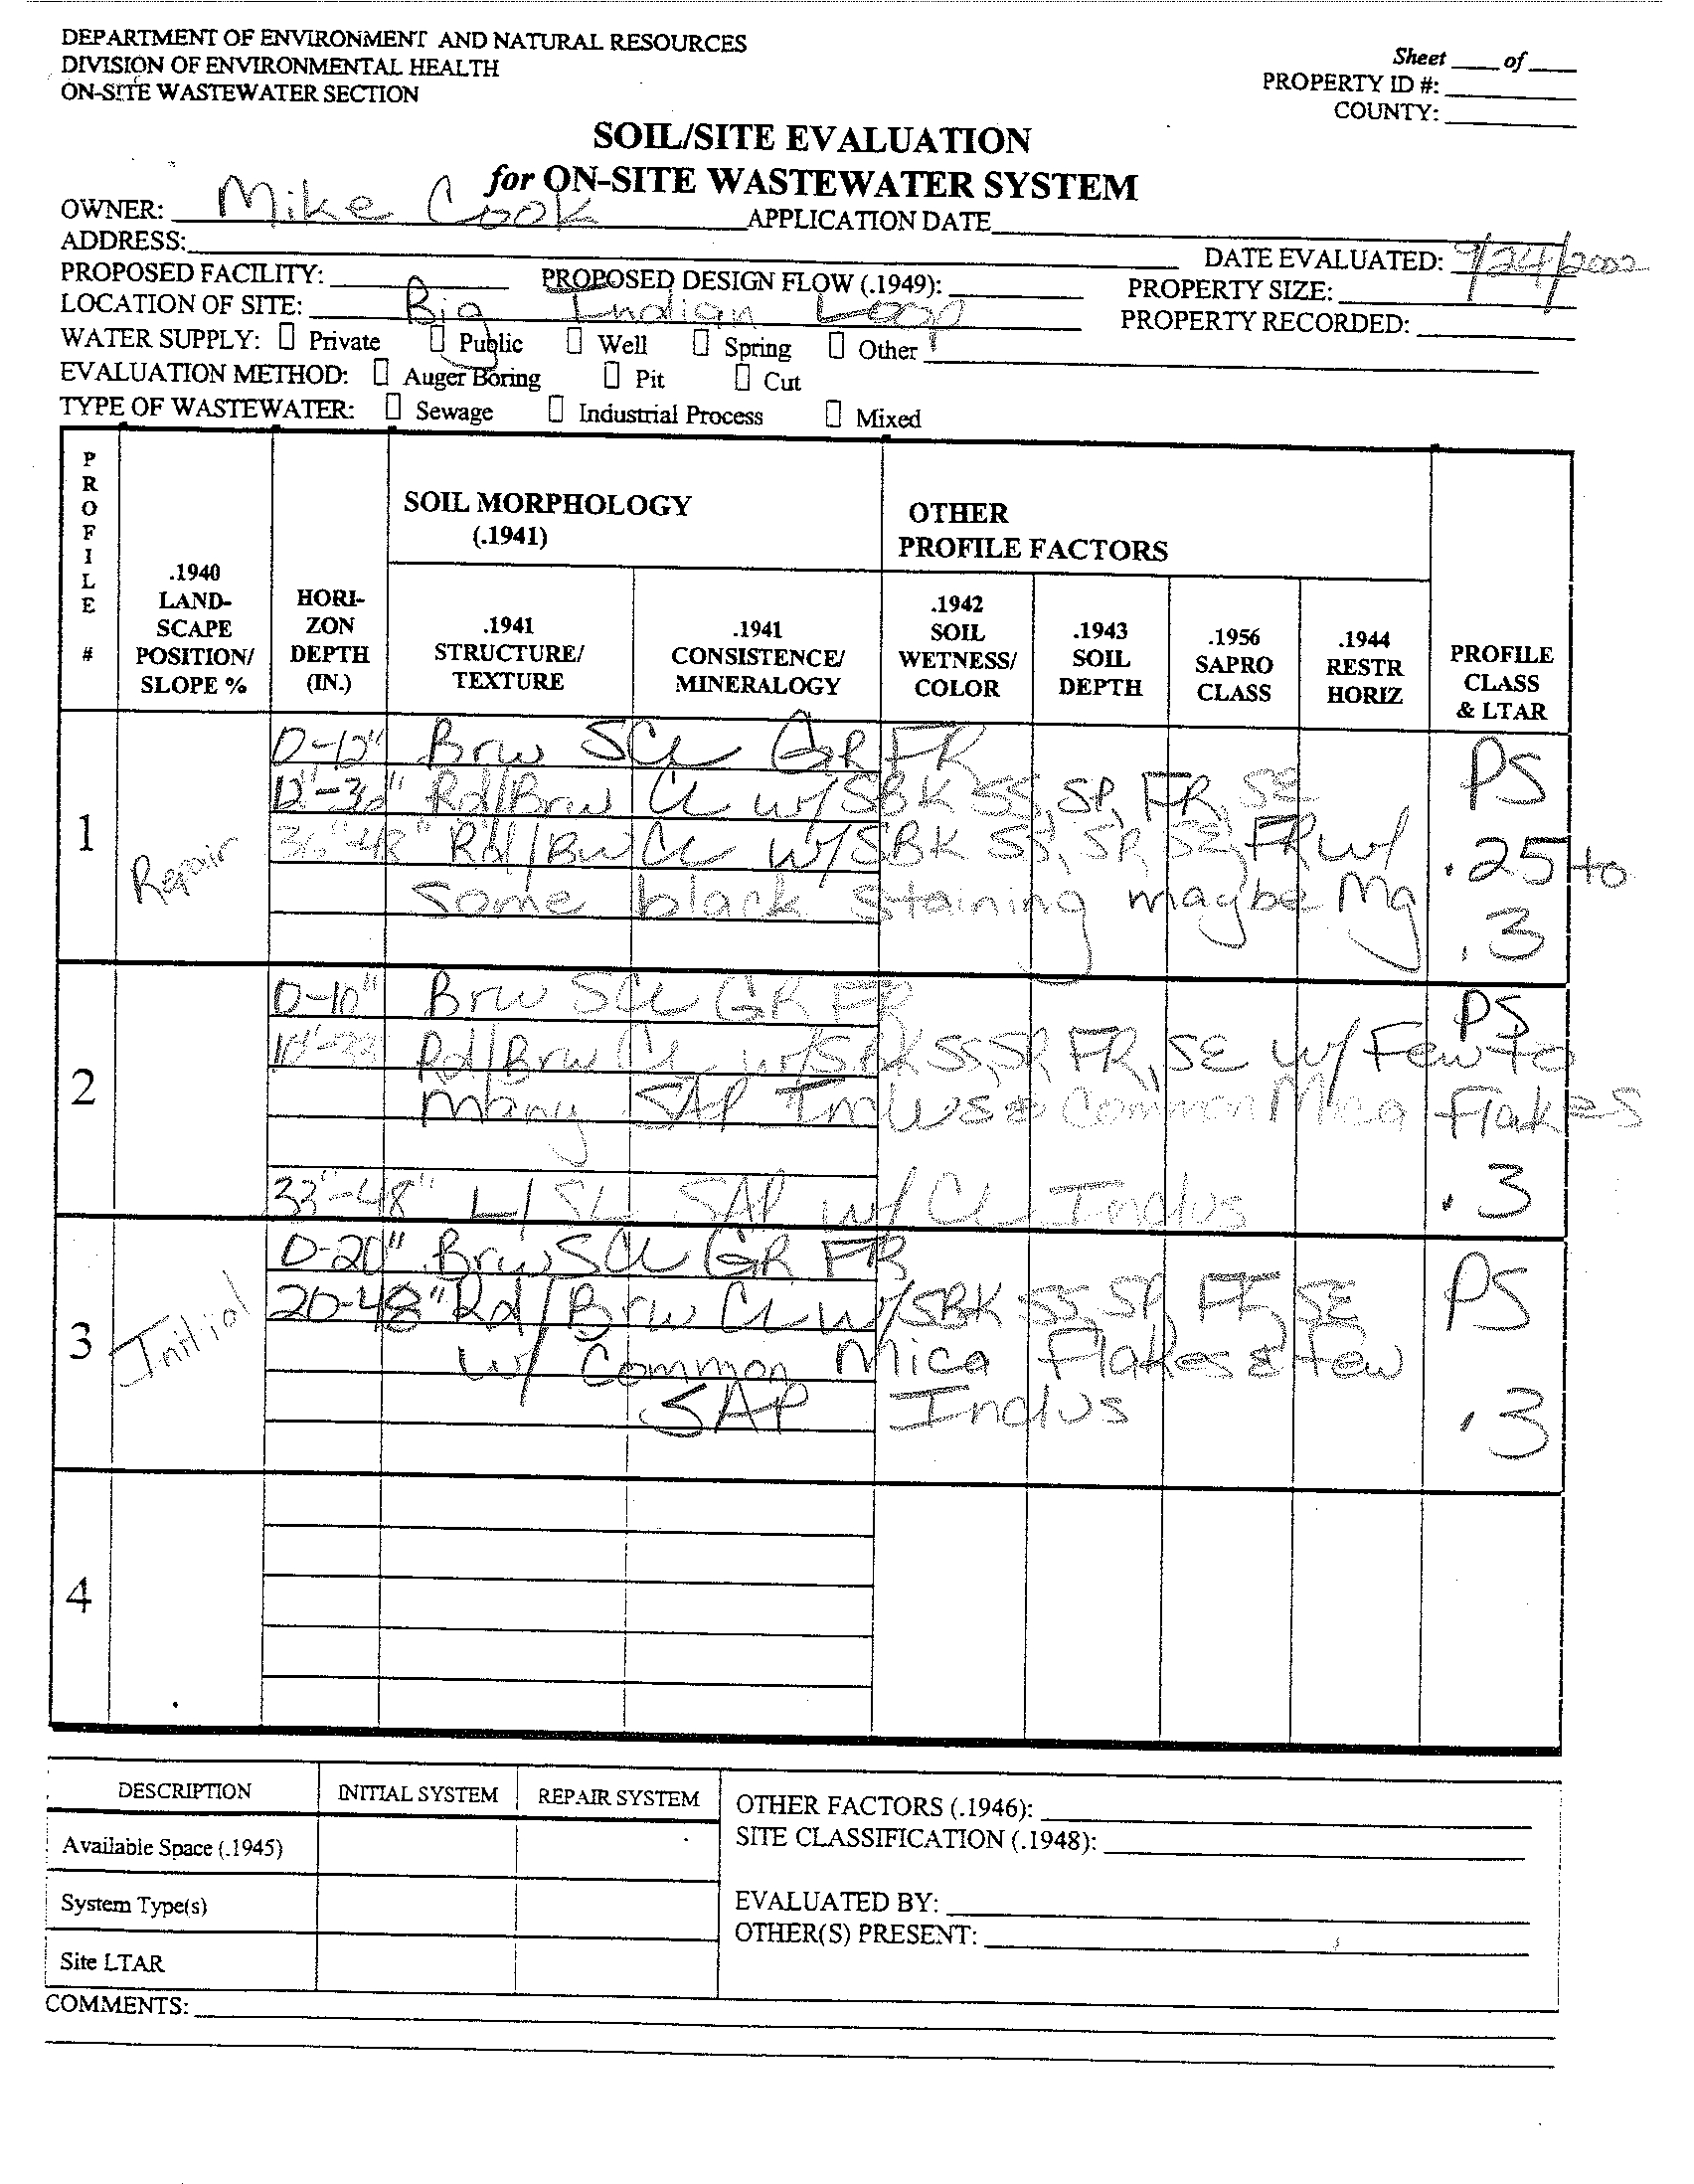 DEPARTMENT OF ENVIRONMENT AND NATURAL RESOURCES
DIVISION OF ENVIRONMENTAL HEALTH
ON-SITE WASTEWATER SECTION
Sheet ____ of ____
PROPERTY ID #:
COUNTY:
SOIL/SITE EVALUATION
for ON-SITE WASTEWATER SYSTEM
OWNER: Mike Cook APPLICATION DATE
ADDRESS: DATE EVALUATED: 9/24/2002
PROPOSED FACILITY: PROPOSED DESIGN FLOW (.1949): PROPERTY SIZE:
LOCATION OF SITE: Big Indian Loop PROPERTY RECORDED:
WATER SUPPLY: Private Public Well Spring Other
EVALUATION METHOD: Auger Boring Pit Cut
TYPE OF WASTEWATER: Sewage Industrial Process Mixed
PROFILE #
.1940 LAND-SCAPE POSITION/ SLOPE %
HORI-ZON DEPTH (IN.)
SOIL MORPHOLOGY (.1941)
.1941 STRUCTURE/ TEXTURE
.1941 CONSISTENCE/ MINERALOGY
OTHER PROFILE FACTORS
.1942 SOIL WETNESS/ COLOR
.1943 SOIL DEPTH
.1956 SAPRO CLASS
.1944 RESTR HORIZ
PROFILE CLASS & LTAR
1 Repair
0-12" Brw SCL GR FR
12"-36" Rd/Brw CL w/SBK SS, SP, FR, SE
36"-48" Rd/Brw CL w/SBK SS, SP, SE, FR w/
some black staining maybe Mg
PS
.25 to
.3
2
0-10" Brw SCL GR FR
Rd/Brw CL w/SBK SS, SP, FR, SE w/ Few to
many SAP Inclus & Common Mica Flakes
33"-48" L/SL SAP w/ CL Inclus
PS
.3
3 Initial
0-20" Brw SCL GR FR
20-48" Rd/Brw CL w/SBK SS, SP, FR, SE
w/ Common Mica Flakes & few
SAP Inclus
PS
.3
4
DESCRIPTION INITIAL SYSTEM REPAIR SYSTEM
Available Space (.1945)
System Type(s)
Site LTAR
OTHER FACTORS (.1946):
SITE CLASSIFICATION (.1948):
EVALUATED BY:
OTHER(S) PRESENT:
COMMENTS: